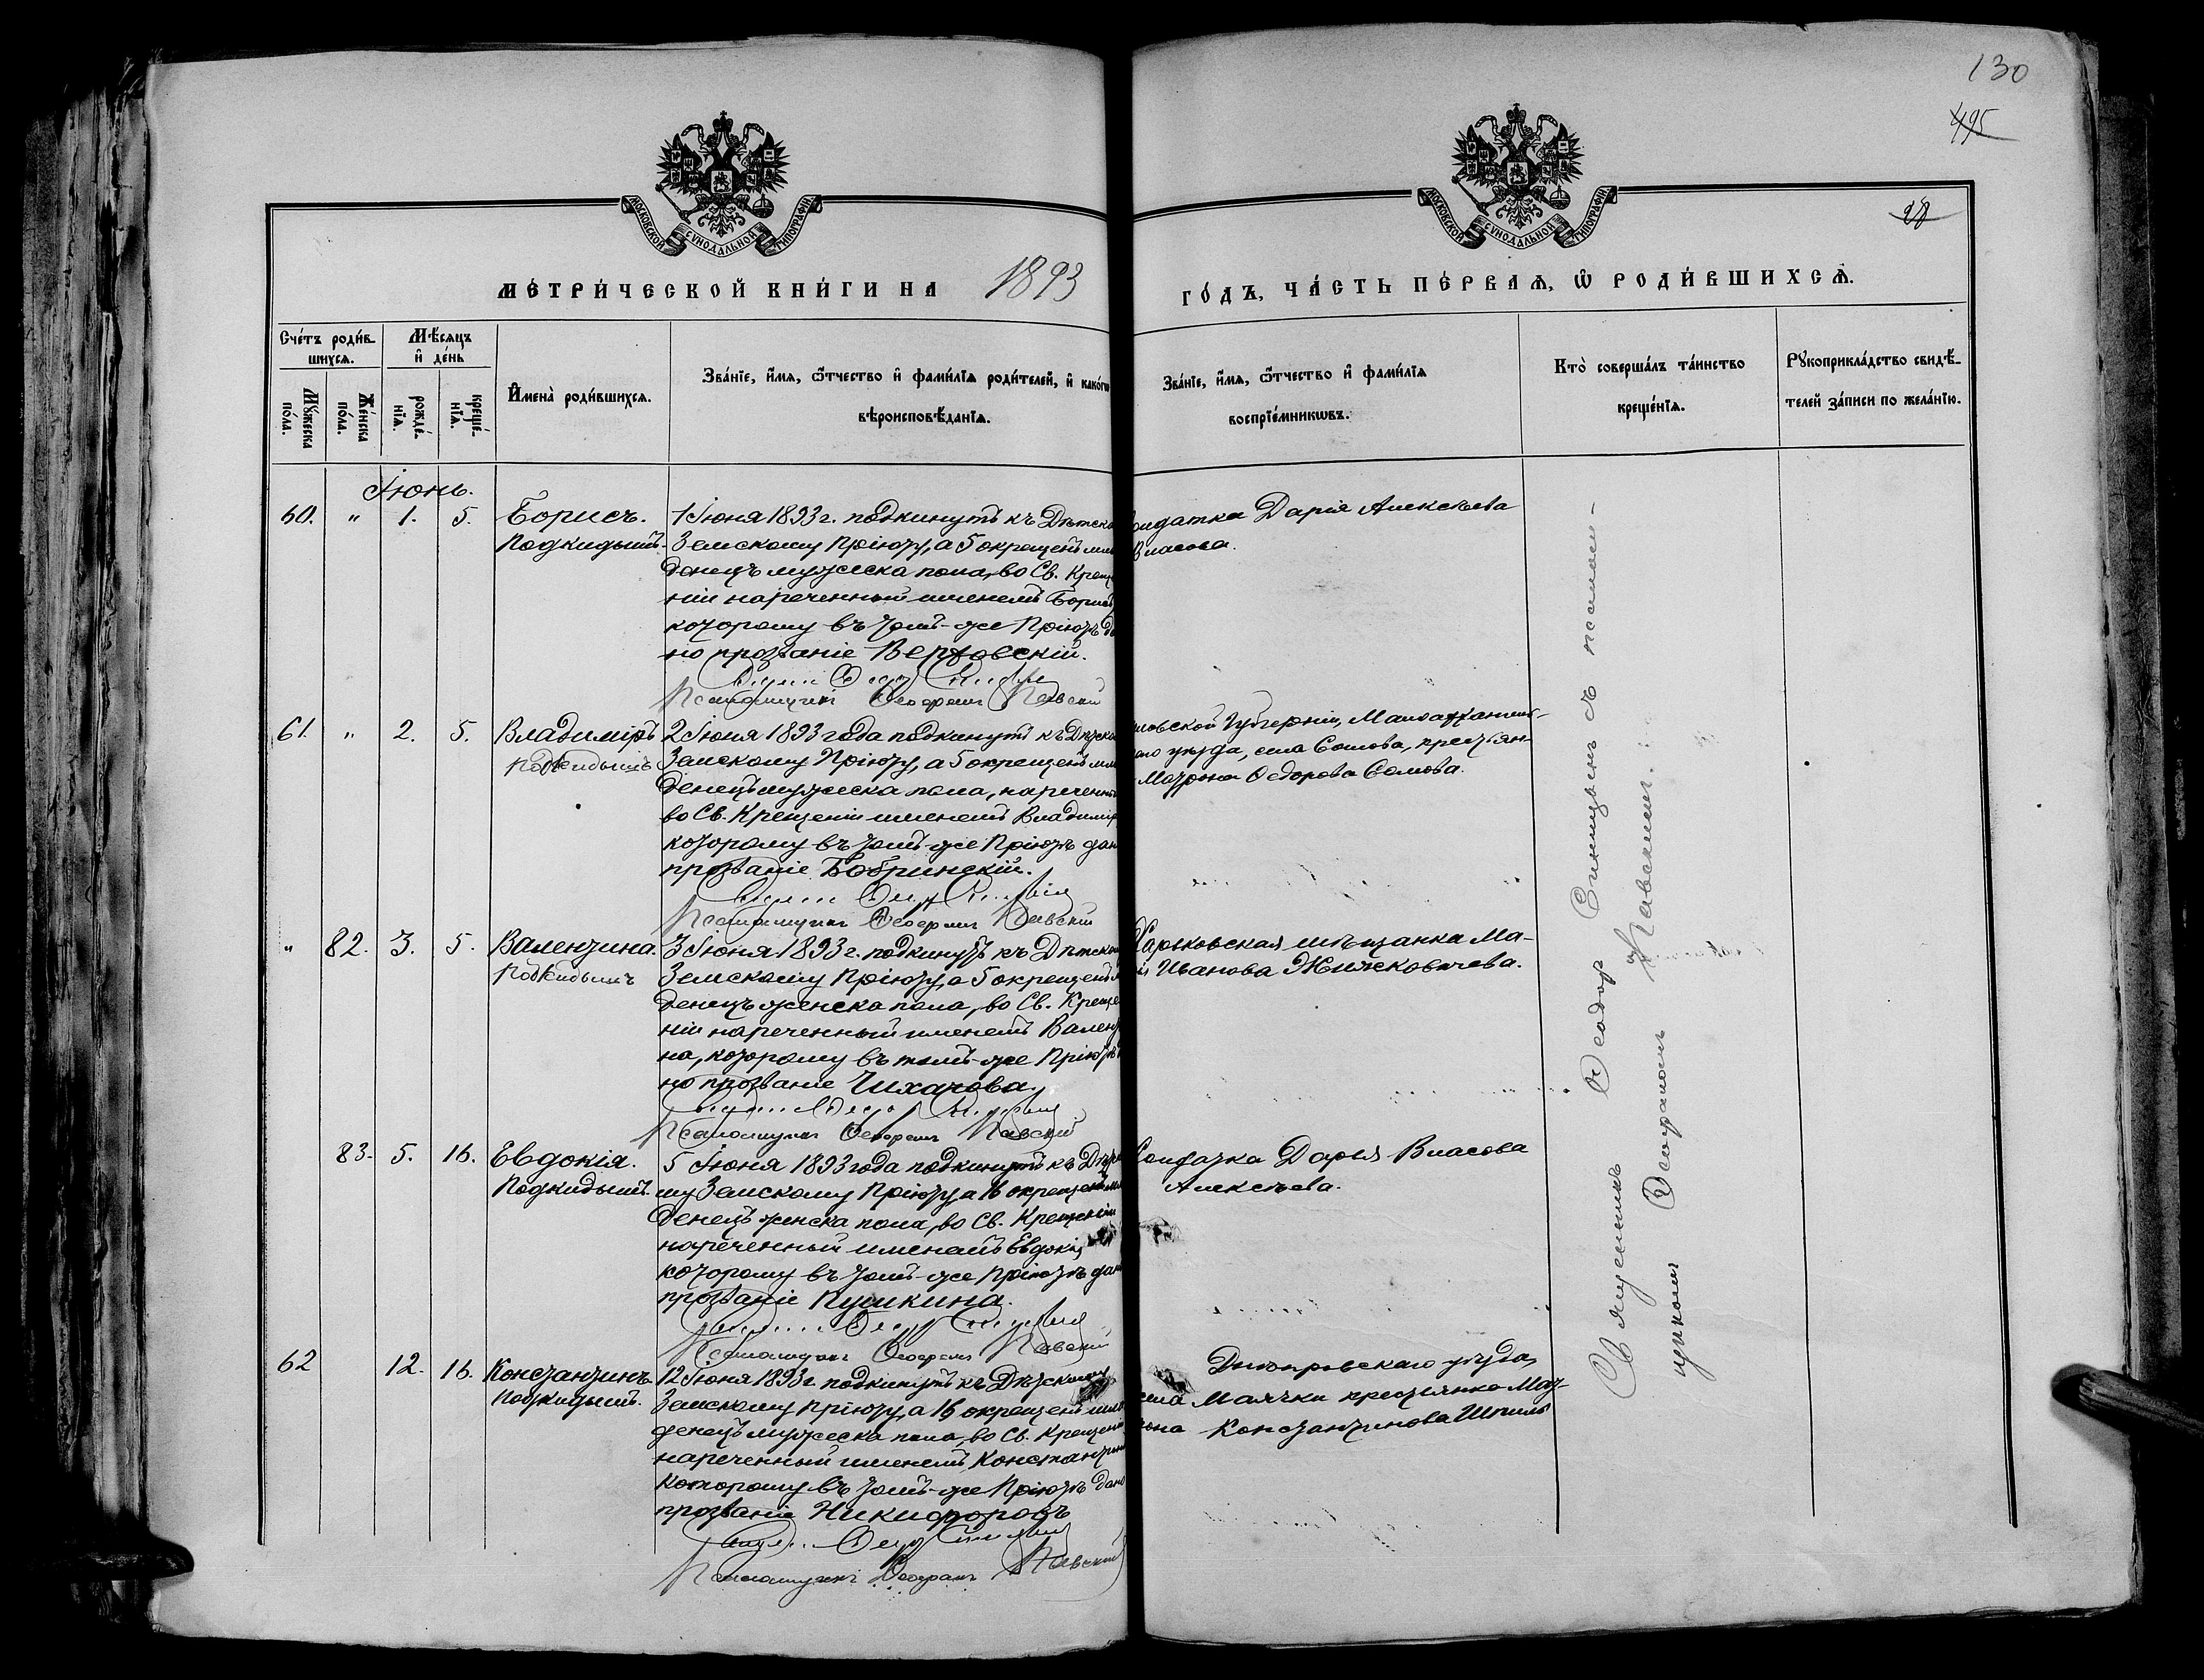 130
495
28
МОСКОВСКОЙ СѴНОДАЛЬНОЙ ТИПОГРАФІИ
МОСКОВСКОЙ СѴНОДАЛЬНОЙ ТИПОГРАФІИ
МЕТРИ́ЧЕСКОЙ КНИ́ГИ НА 1893
ГО́ДЪ, ЧА́СТЬ ПЕ́РВАѦ, Ѿ РОДИ́ВШИХСѦ.
Сче́тъ роди́в-
шихсѧ.
Мꙋ́жеска по́ла.
Же́нска по́ла.
Мѣ́сѧцъ
и҆ де́нь
рожде́-
нїѧ.
креще́-
нїѧ.
И҆мена̀ роди́вшихсѧ.
Зва́нїе, и҆́мѧ, ѻ҆́тчество и҆ фами́лїѧ роди́телей, и҆ како́гѡ
вѣроисповѣ́данїѧ.
Зва́нїе, и҆́мѧ, ѻ҆́тчество и҆ фами́лїѧ
воспрїе́мникѡвъ.
Кто̀ соверша́лъ та́инство
креще́нїѧ.
Рꙋкоприкла́дство свидѣ́-
телей за́писи по жела́нїю.
Іюнь.
60. " 1. 5. Борисъ.
Подкидышъ.
1 Іюня 1893 г. подкинутъ къ Дѣтско
Земскому Пріюту, а 5 окрещенъ мла
денецъ мужеска пола, во Св. Креще
ніи нареченный именемъ Борисъ,
которому въ томъ-же Пріютѣ да
но прозваніе Вертовскій.
Псаломщикъ Ѳеофанъ Павскій
олдатка Дарія Алексѣева
Власова.
61. " 2. 5. Владиміръ
Подкидышъ
2 Іюня 1893 года подкинутъ къ Дѣтско
Земскому Пріюту, а 5 окрещенъ мла
денецъ мужеска пола, нареченный
во Св. Крещеніи именемъ Владимір
которому въ томъ-же Пріютѣ дан
прозваніе Бобринскій.
Псаломщикъ Ѳеофанъ Павскій
ловской Губерніи, Малоархангель-
аго уѣзда, села Сомова, крестьян-
Матрона Ѳедорова Сомова.
" 82. 3. 5. Валентина.
Подкидышъ
3 Іюня 1893 г. подкинутъ къ Дѣтском
Земскому Пріюту, а 5 окрещенъ м
денецъ женска пола, во Св. Креще
ніи нареченный именемъ Валент
на, которому въ томъ-же Пріютѣ
но прозваніе Чихачова.
Псаломщикъ Ѳеофанъ Павскій
Харьковская мѣщанка Ма-
Иванова
83. 5. 16. Евдокія.
Подкидышъ.
5 Іюня 1893 года подкинутъ къ Дѣтс
му Земскому Пріюту, а 16 окрещенъ мла
денецъ женска пола, во Св. Крещеніи
нареченный именемъ Евдокія,
которому въ томъ-же Пріютѣ дан
прозваніе Пушкина.
Псаломщикъ Ѳеофанъ Павскій
Солдатка Дарья Власова
Алексѣева.
62 12. 16. Константинъ
Подкидышъ.
12 Іюня 1893 г. подкинутъ къ Дѣтскому
Земскому Пріюту, а 16 окрещенъ мла
денецъ мужеска пола, во Св. Крещеніи
нареченный именемъ Константин
которому въ томъ-же Пріютѣ дано
прозваніе Никифоровъ
Псаломщикъ Ѳеофанъ Павскій
Днѣпровскаго уѣзда,
села Маячки крестьянка Мат-
рона Константинова Шпиль
Священникъ Ѳеодор Синицынъ съ псалом-
щикомъ Ѳеофаномъ Павскимъ.